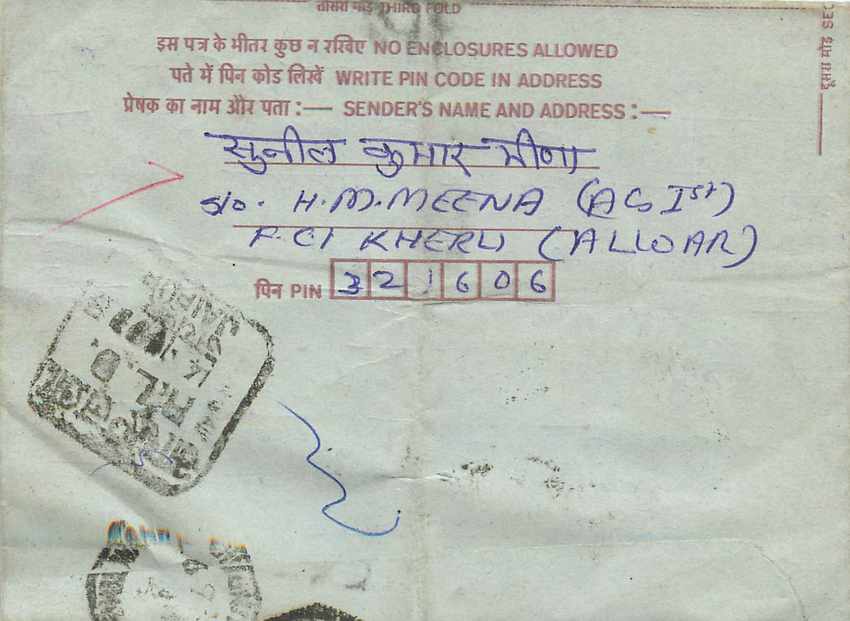 तीसरा मोड़ THIRD FOLD
इस पत्र के भीतर कुछ न रखिए NO ENCLOSURES ALLOWED
पते में पिन कोड लिखें WRITE PIN CODE IN ADDRESS
प्रेषक का नाम और पता :— SENDER'S NAME AND ADDRESS :—
सुनील कुमार मीणा
S/o. H.M.MEENA (AG Ist)
F.CI KHERLI (ALWAR)
पिन PIN 321606
दूसरा मोड़ SEC
JAIPUR